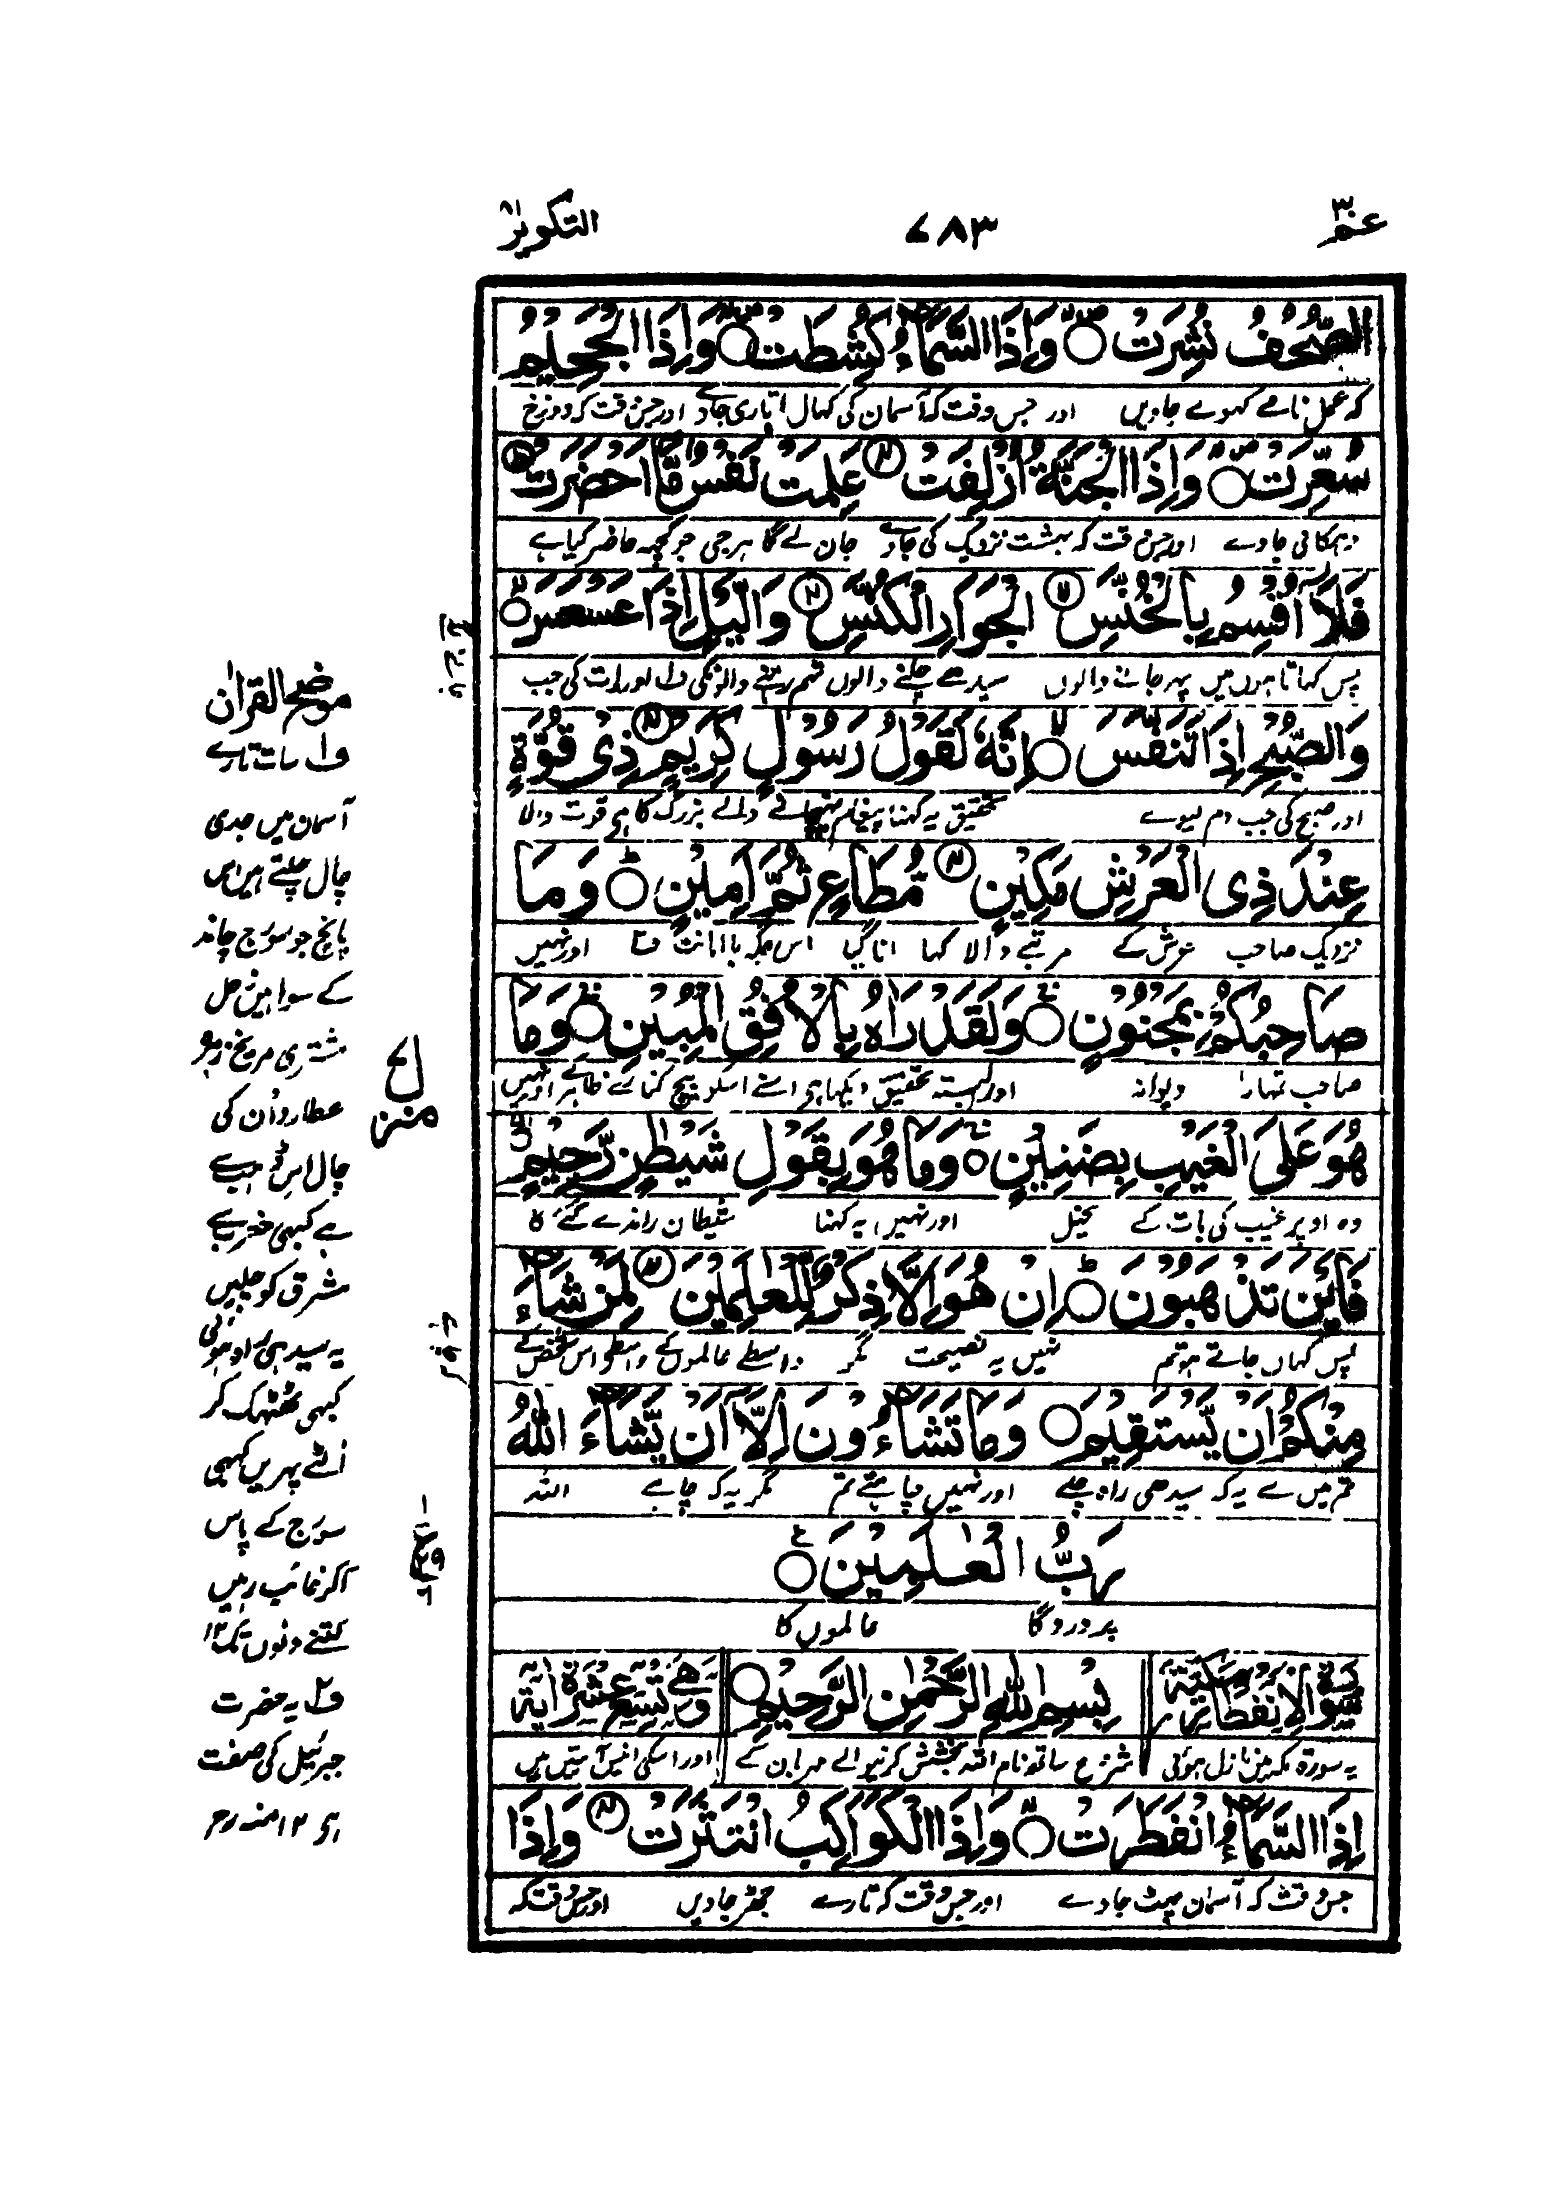 عم ٣٠
٧٨٣
التکویر ٨١
الصُّحُفُ نُشِرَتْ ○ وَاِذَا السَّمَآءُ كُشِطَتْ ○ وَاِذَا الْجَحِيْمُ
کہ عمل نامے کھولے جاویں اور جس وقت کہ آسمان کی کھال اتاری جاوے اور جس وقت کہ دوزخ
سُعِّرَتْ ○ وَاِذَا الْجَنَّةُ اُزْلِفَتْ ○ عَلِمَتْ نَفْسٌ مَّآ اَحْضَرَتْ ○
دہکائی جاوے اور جس وقت کہ بہشت نزدیک کی جاوے جان لے گا ہر جی جو کچھ حاضر کیا ہے
فَلَآ اُقْسِمُ بِالْخُنَّسِ ○ الْجَوَارِ الْكُنَّسِ ○ وَالَّيْلِ اِذَا عَسْعَسَ ○
پس کھاتا ہوں میں پھر جانے والوں سیدھے چلنے والوں تھم رہنے والوں کی ف۱ اور رات کی جب
وَالصُّبْحِ اِذَا تَنَفَّسَ ○ اِنَّهٗ لَقَوْلُ رَسُوْلٍ كَرِيْمٍ ○ ذِيْ قُوَّةٍ
اور صبح کی جب دم لیوے تحقیق یہ کہنا پیغام پہنچانے والے بزرگ کا ہے قوت والا
عِنْدَ ذِي الْعَرْشِ مَكِيْنٍ ○ مُّطَاعٍ ثَمَّ اَمِيْنٍ ○ وَمَا
نزدیک صاحب عرش کے مرتبے والا کہا مانا گیا اس جگہ با امانت ف۲ اور نہیں
صَاحِبُكُمْ بِمَجْنُوْنٍ ○ وَلَقَدْ رَاٰهُ بِالْاُفُقِ الْمُبِيْنِ ○ وَمَا
صاحب تمہارا دیوانہ اور البتہ تحقیق دیکھا ہے اسنے اسکو بیچ کنارے ظاہر کے اور نہیں
هُوَ عَلَى الْغَيْبِ بِضَنِيْنٍ ○ وَمَا هُوَ بِقَوْلِ شَيْطٰنٍ رَّجِيْمٍ ○
وہ اوپر غیب کی بات کے بخیل اور نہیں یہ کہنا شیطان راندے گئے کا
فَاَيْنَ تَذْهَبُوْنَ ○ اِنْ هُوَ اِلَّا ذِكْرٌ لِّلْعٰلَمِيْنَ ○ لِمَنْ شَآءَ
پس کہاں جاتے ہو تم نہیں یہ نصیحت مگر واسطے عالموں کے واسطے اس شخص کے
مِنْكُمْ اَنْ يَّسْتَقِيْمَ ○ وَمَا تَشَآءُوْنَ اِلَّآ اَنْ يَّشَآءَ اللّٰهُ
تم میں سے یہ کہ سیدھی راہ چلے اور نہیں چاہتے تم مگر یہ کہ چاہے اللہ
رَبُّ الْعٰلَمِيْنَ ○
پروردگار عالموں کا
سُوْرَةُ الْاِنْفِطَارِ مَكِّيَّةٌ بِسْمِ اللّٰهِ الرَّحْمٰنِ الرَّحِيْمِ ○ وَهِيَ تِسْعَ عَشْرَةَ اٰيَةً
یہ سورۃ مکہ میں نازل ہوئی شروع ساتھ نام اللہ بخشش کرنیوالے مہربان کے اور اسکی انیس آیتیں ہیں
اِذَا السَّمَآءُ انْفَطَرَتْ ○ وَاِذَا الْكَوَاكِبُ انْتَثَرَتْ ○ وَاِذَا
جس وقت کہ آسمان پھٹ جاوے اور جس وقت کہ تارے جھڑ جاویں اور جس وقت کہ
موضح القرآن
ف۱ سات تارے
آسمان میں جدی
چال چلتے ہیں اس
پانچ جو سورج چاند
کے سوا ہیں زحل
مشتری مریخ زہرہ
عطارد ان کی
چال اس ڈھب سے
ہے کبھی مغرب سے
مشرق کو چلیں
یہ سیدھی راہ ہوئی
کبھی ٹھٹھک کر
الٹے پھریں کبھی
سورج کے پاس
آکر غائب رہیں
کتنے دنوں تک ١٢
ف۲ یہ حضرت
جبرئیل کی صفت
ہے ١٢ منہ رح
منزل ٧